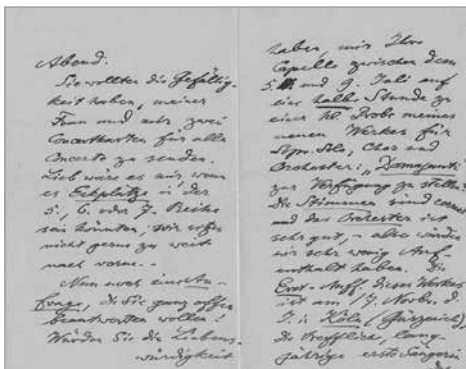 Abend.
Sie wollten die Gefällig-
keit haben, meiner
Frau und mir zwei
Concertkarten für alle
Concerte zu senden.
Lieb wäre es mir wenn
es Eckplätze in der
5., 6. oder 7. Reihe
sein könnten; wir sitzen
nicht gerne zu weit
nach vorne. –
Nun noch eine An-
frage, die Sie ganz offen
beantworten wollen!
Würden Sie die Liebens-
würdigkeit
haben, mir Ihre
Capelle zwischen dem
5. und 9. Juli auf
eine halbe Stunde zu
einer kl. Probe meines
neuen Werkes für
Sopr. Solo, Chor und
Orchester: „Damajanti"
zur Verfügung zu stellen?
Die Stimmen sind correct
und das Orchester ist
sehr gut, – also würden
wir sehr wenig Auf-
enthalt haben. Die
Erst-Auff. dieses Werkes
ist am 17. Novbr. d.
J. in Köln (Gürzenich),
die trefflich, lang-
jährige erste Sängerin